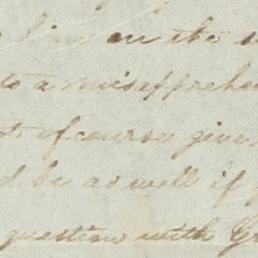 an the
to a misapprehe
of course give
d be as well if
question with G